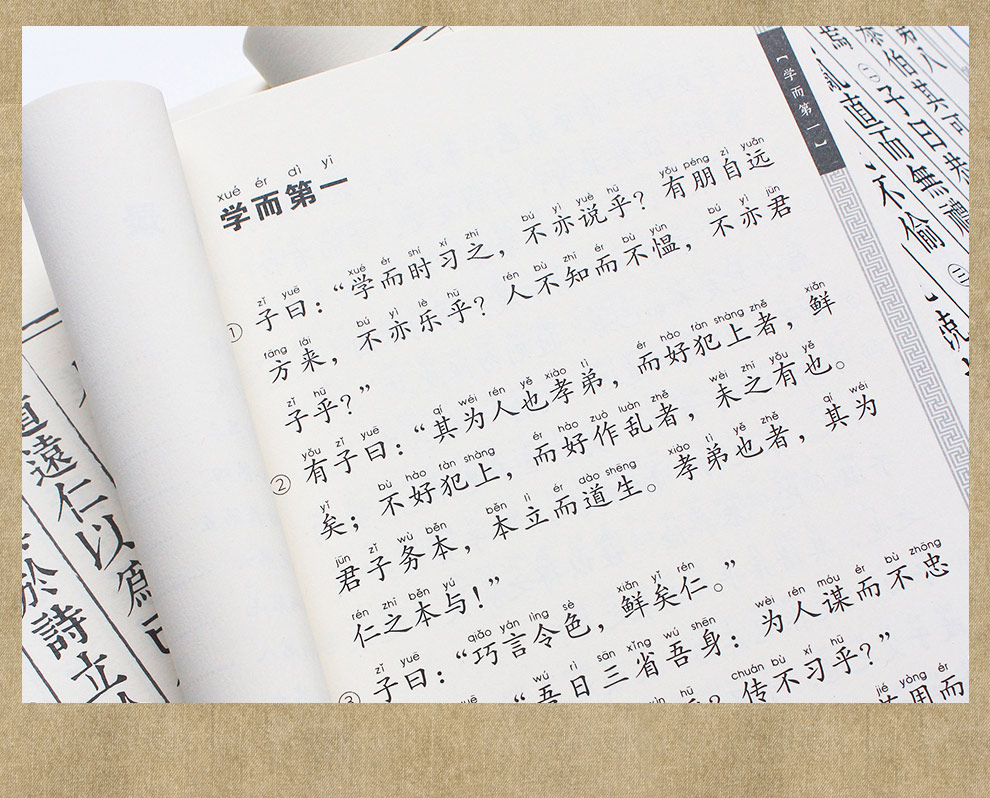 【学而第一】
xué ér dì yī
学而第一
zǐ yuē xué ér shí xí zhī bú yì yuè hū yǒu péng zì yuǎn
① 子曰：“学而时习之，不亦说乎？有朋自远
fāng lái bú yì lè hū rén bù zhī ér bù yùn bú yì jūn
方来，不亦乐乎？人不知而不愠，不亦君
zǐ hū
子乎？”
yǒu zǐ yuē qí wéi rén yě xiào tì ér hào fàn shàng zhě xiǎn
② 有子曰：“其为人也孝弟，而好犯上者，鲜
yǐ bù hào fàn shàng ér hào zuò luàn zhě wèi zhī yǒu yě
矣；不好犯上，而好作乱者，未之有也。
jūn zǐ wù běn běn lì ér dào shēng xiào tì yě zhě qí wéi
君子务本，本立而道生。孝弟也者，其为
rén zhī běn yú
仁之本与！”
zǐ yuē qiǎo yán lìng sè xiǎn yǐ rén
③ 子曰：“巧言令色，鲜矣仁。”
yuē wú rì sān xǐng wú shēn wèi rén móu ér bù zhōng
“吾日三省吾身：为人谋而不忠
hū chuán bù xí hū
传不习乎？”
jié yòng ér
用而
㊁子曰恭
直而無禮
不偷
㊂
道遠仁以為
於詩立